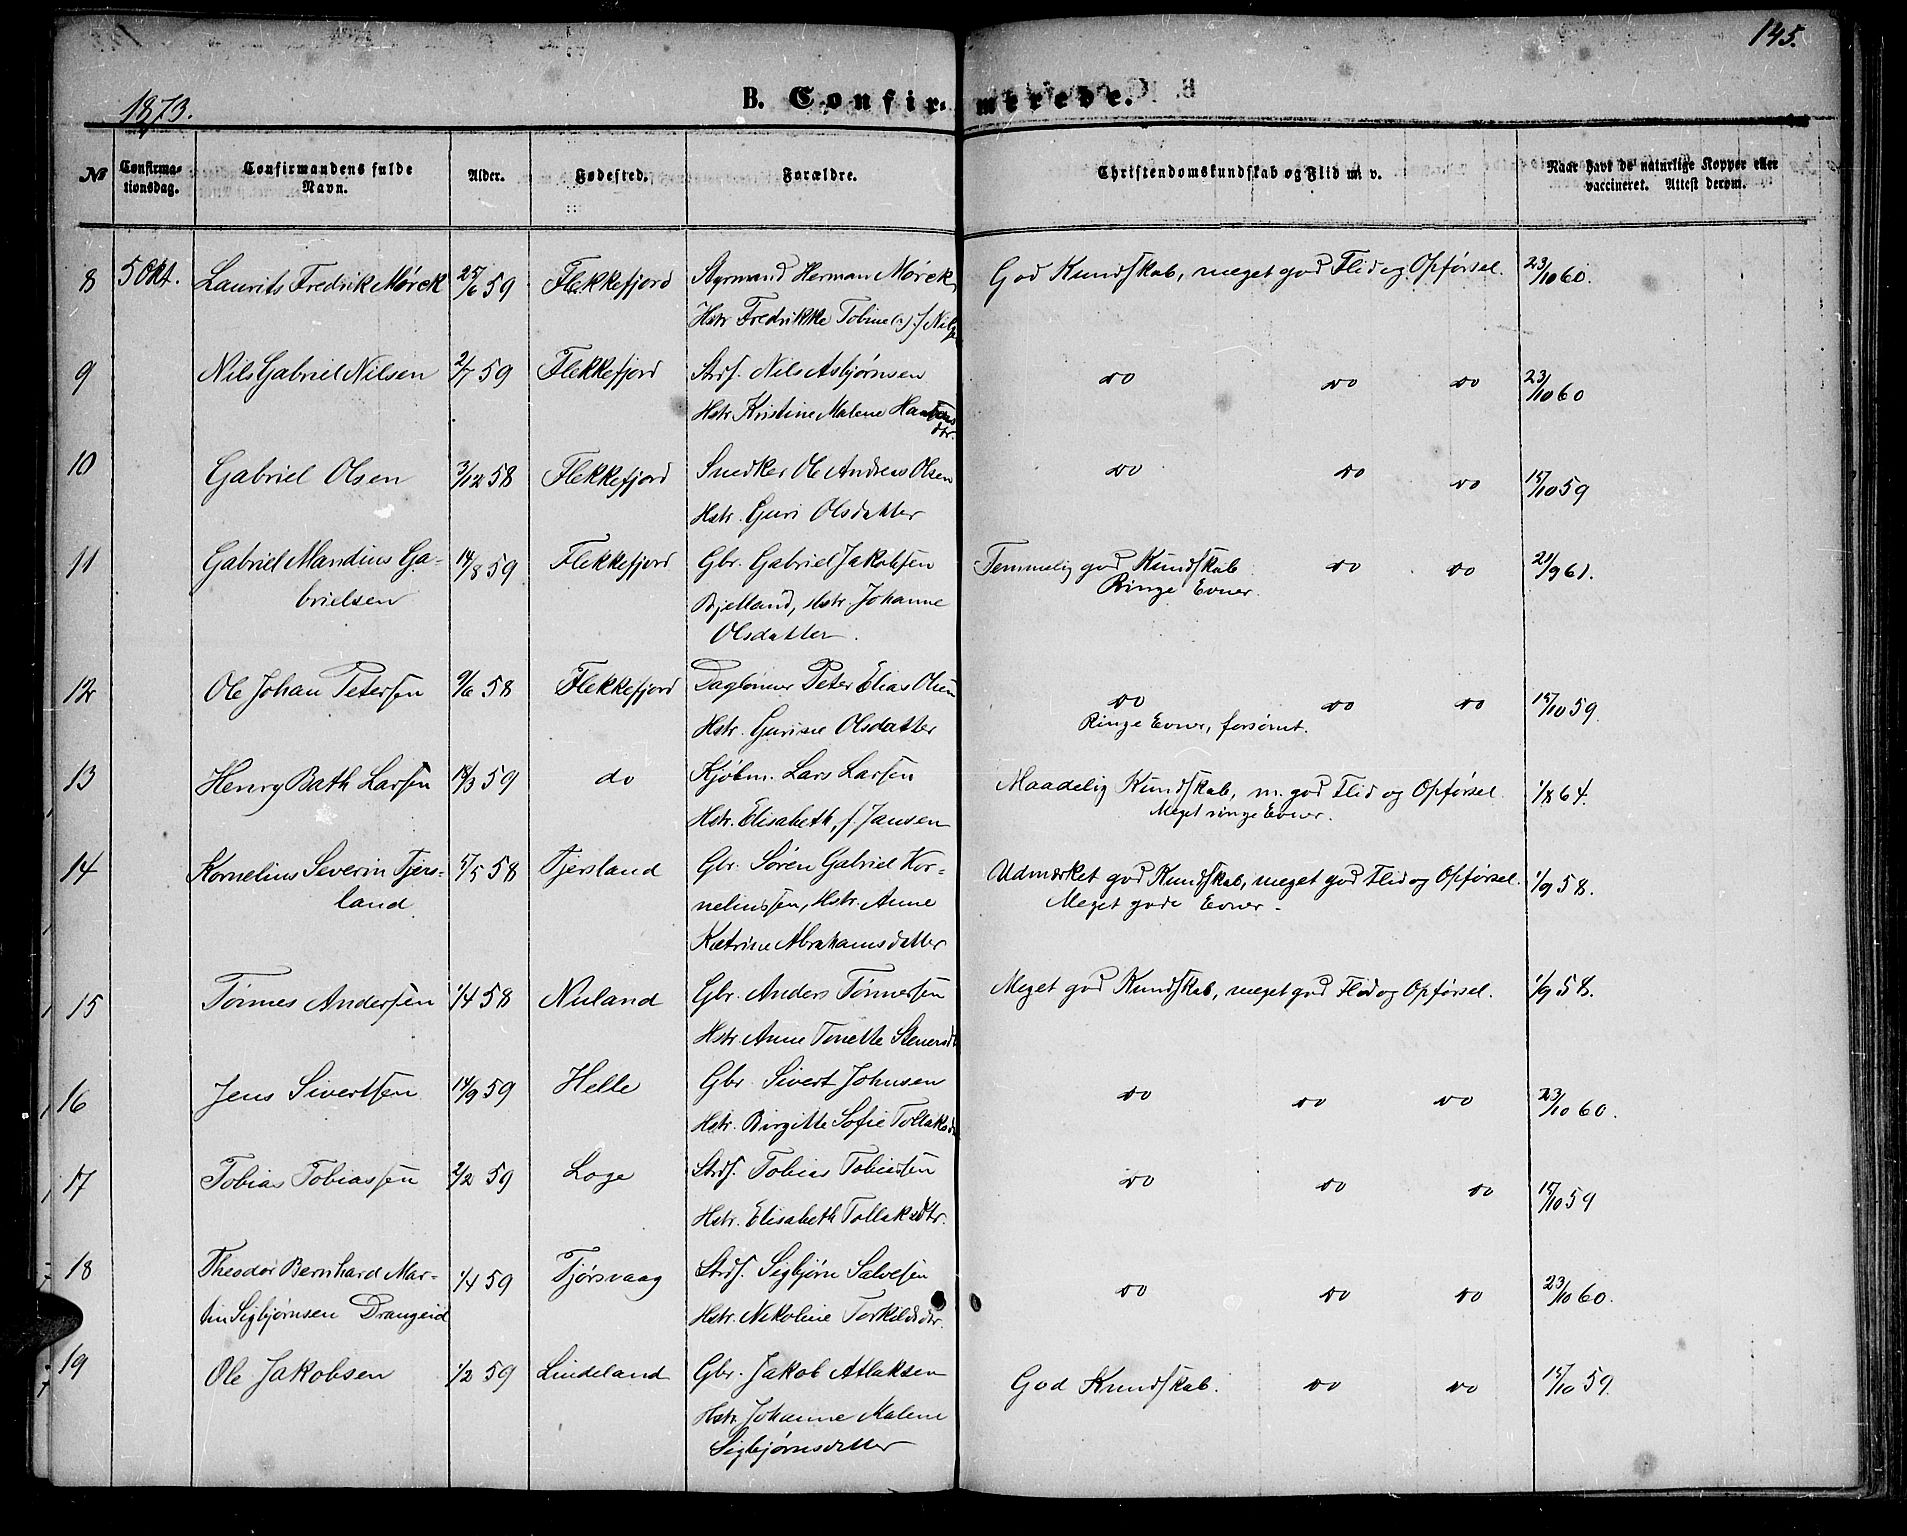 145.
1873.
B. Confirmerede.
No Confirmationsdag. Confirmandens fulde Navn. Alder. Fødested. Forældre. Christendomskundskab og Flid m. v. Naar havt de naturlige Kopper eller vaccineret. Attest derom.
8 5 Okt. Laurits Fredrik Mørck 25/6 59 Flekkefjord Styrmand Herman Mørck, God Kundskab, meget god Flid og Opførsel. 23/10 60.
Hstr Fredrikke Tobine
9 Nils Gabriel Nilsen 2/7 59 Flekkefjord Strds. Nils Asbjørnsen do do do 23/10 60
Hstr Kristine Malene
dtr.
10 Gabriel Olsen 3/12 58 Flekkefjord Snedker Ole Andreas Olsen do do do 15/10 59
Hstr. Guri Olsdatter
11 Gabriel Mandius Ga- 14/8 59 Flekkefjord Gbr. Gabriel Jakobsen Temmelig god Kundskab do do 21/9 61.
brielsen Bjelland, Hstr. Johanne Ringe Evner.
Olsdatter.
12 Ole Johan Petersen 9/6 58 Flekkefjord Daglønner Peter Elias Olsen do do do 15/10 59.
Hstr. Gurine Olsdatter Ringe Evner, forsømt.
13 Henry Bath Larsen /3 59 do Kjøbm. Lars Larsen Maadelig Kundskab, m. god Flid og Opførsel. 1/8 64.
Hstr. Elisabeth, f. Jansen Meget ringe Evner.
14 Kornelius Severin Tjers- /5 58 Tjersland Gbr. Søren Gabriel Kor- Udmærket god Kundskab, meget god Flid og Opførsel. 1/9 58.
land neliussen, Hstr. Anne Meget gode Evner.
Katrine Abrahamsdatter
15 Tønnes Andersen 1/4 58 Nuland Gbr. Anders Tønnesen Meget god Kundskab, meget god Flid og Opførsel. 1/9 58.
Hstr Anne Tonette
16 Jens Sivertsen 14/9 59 Helle Gbr. Sivert Johnsen do do do 23/10 60.
Hstr. Birgitte Sofie
17 Tobias Tobiassen 2/2 59 Loge Strds. Tobias Tobiassen do do do 15/10 59
Hstr. Elisabeth Tollaksdtr.
18 Theodor Bernhard Mar- 1/4 59 Tjørsvaag Strds. Sigbjørn Salvesen do do do 23/10 60.
tin Sigbjørnsen Drangeid Hstr. Nikoline Torkildsdtr.
19 Ole Jakobsen 1/2 59 Lindeland Gbr. Jakob Atlaksen God Kundskab. do do 15/10 59.
Hstr. Johanne Malene
Sigbjørnsdatter